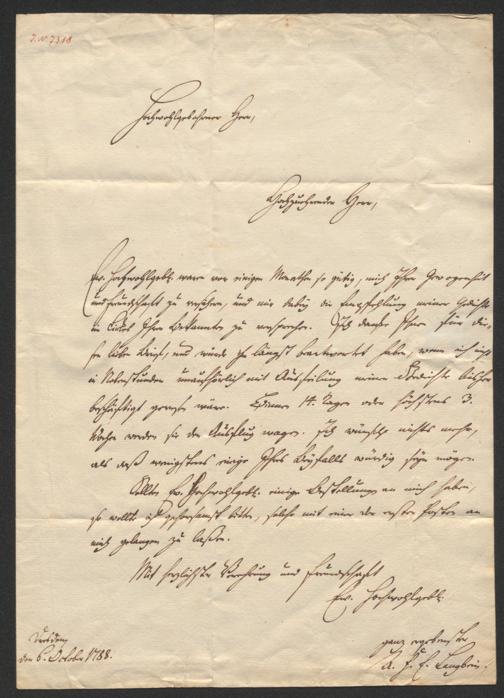 I.N. 7318
Hochwohlgebohrner Herr,
Hochzuehrender Herr,
Ew. Hochwohlgeb. waren vor einigen Monathen so gütig, mich Ihrer Gewogenheit
und Freundschaft zu versichern, und mir dabey die Empfehlung meiner Gedichte
im Cirkel Ihrer Bekannten zu versprechen. Ich danke Ihnen für die
sen lieben Brief, und würde ihn längst beantwortet haben, wenn ich nicht
in Nebenstunden unaufhörlich mit Ausfeilung meiner Gedichte bisher
beschäftigt gewesen wäre. Binnen 14. Tagen oder höchstens 3.
Wochen werden sie den Ausflug wagen. Ich wünsche nichts mehr,
als daß wenigstens einige Ihres Beyfalls würdig seyn mögen.
Sollten Ew. Hochwohlgeb. einige Bestellungen an mich haben,
so wollte ich gehorsamst bitten, solche mit einer der ersten Posten an
mich gelangen zu laßen.
Mit herzlichster Verehrung und Freundschaft
Ew. Hochwohlgeb.
Dresden,
den 6. October 1788.
ganz ergebenster
A. F. E. Langbein.